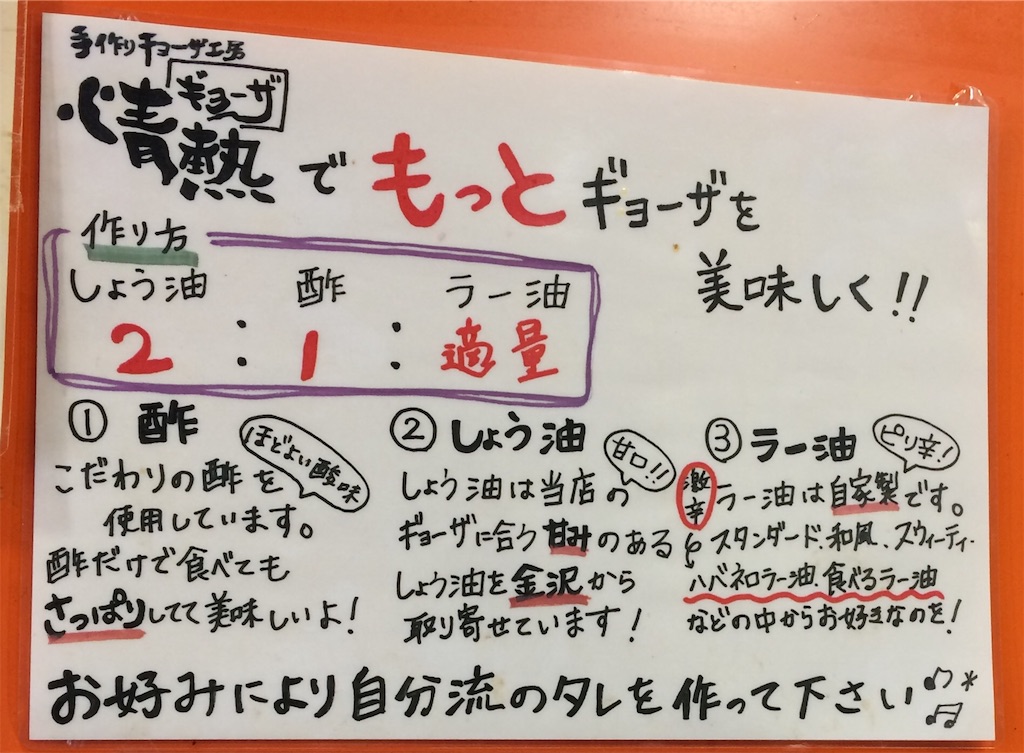 手作りギョーザ工房
情熱ギョーザでもっとギョーザを
美味しく!!
作り方
しょう油 酢 ラー油
2 : 1 : 適量
① 酢
ほどよい酸味
こだわりの酢を
使用しています。
酢だけで食べても
さっぱりしてて美味しいよ!
② しょう油
甘口!!
しょう油は当店の
ギョーザに合う甘みのある
しょう油を金沢から
取り寄せています!
③ ラー油
ピリ辛!
ラー油は自家製です。
スタンダード、和風、スウィーティ・
激辛
ハバネロラー油、食べるラー油
などの中からお好きなのを!
お好みにより自分流のタレを作って下さい♪*♫